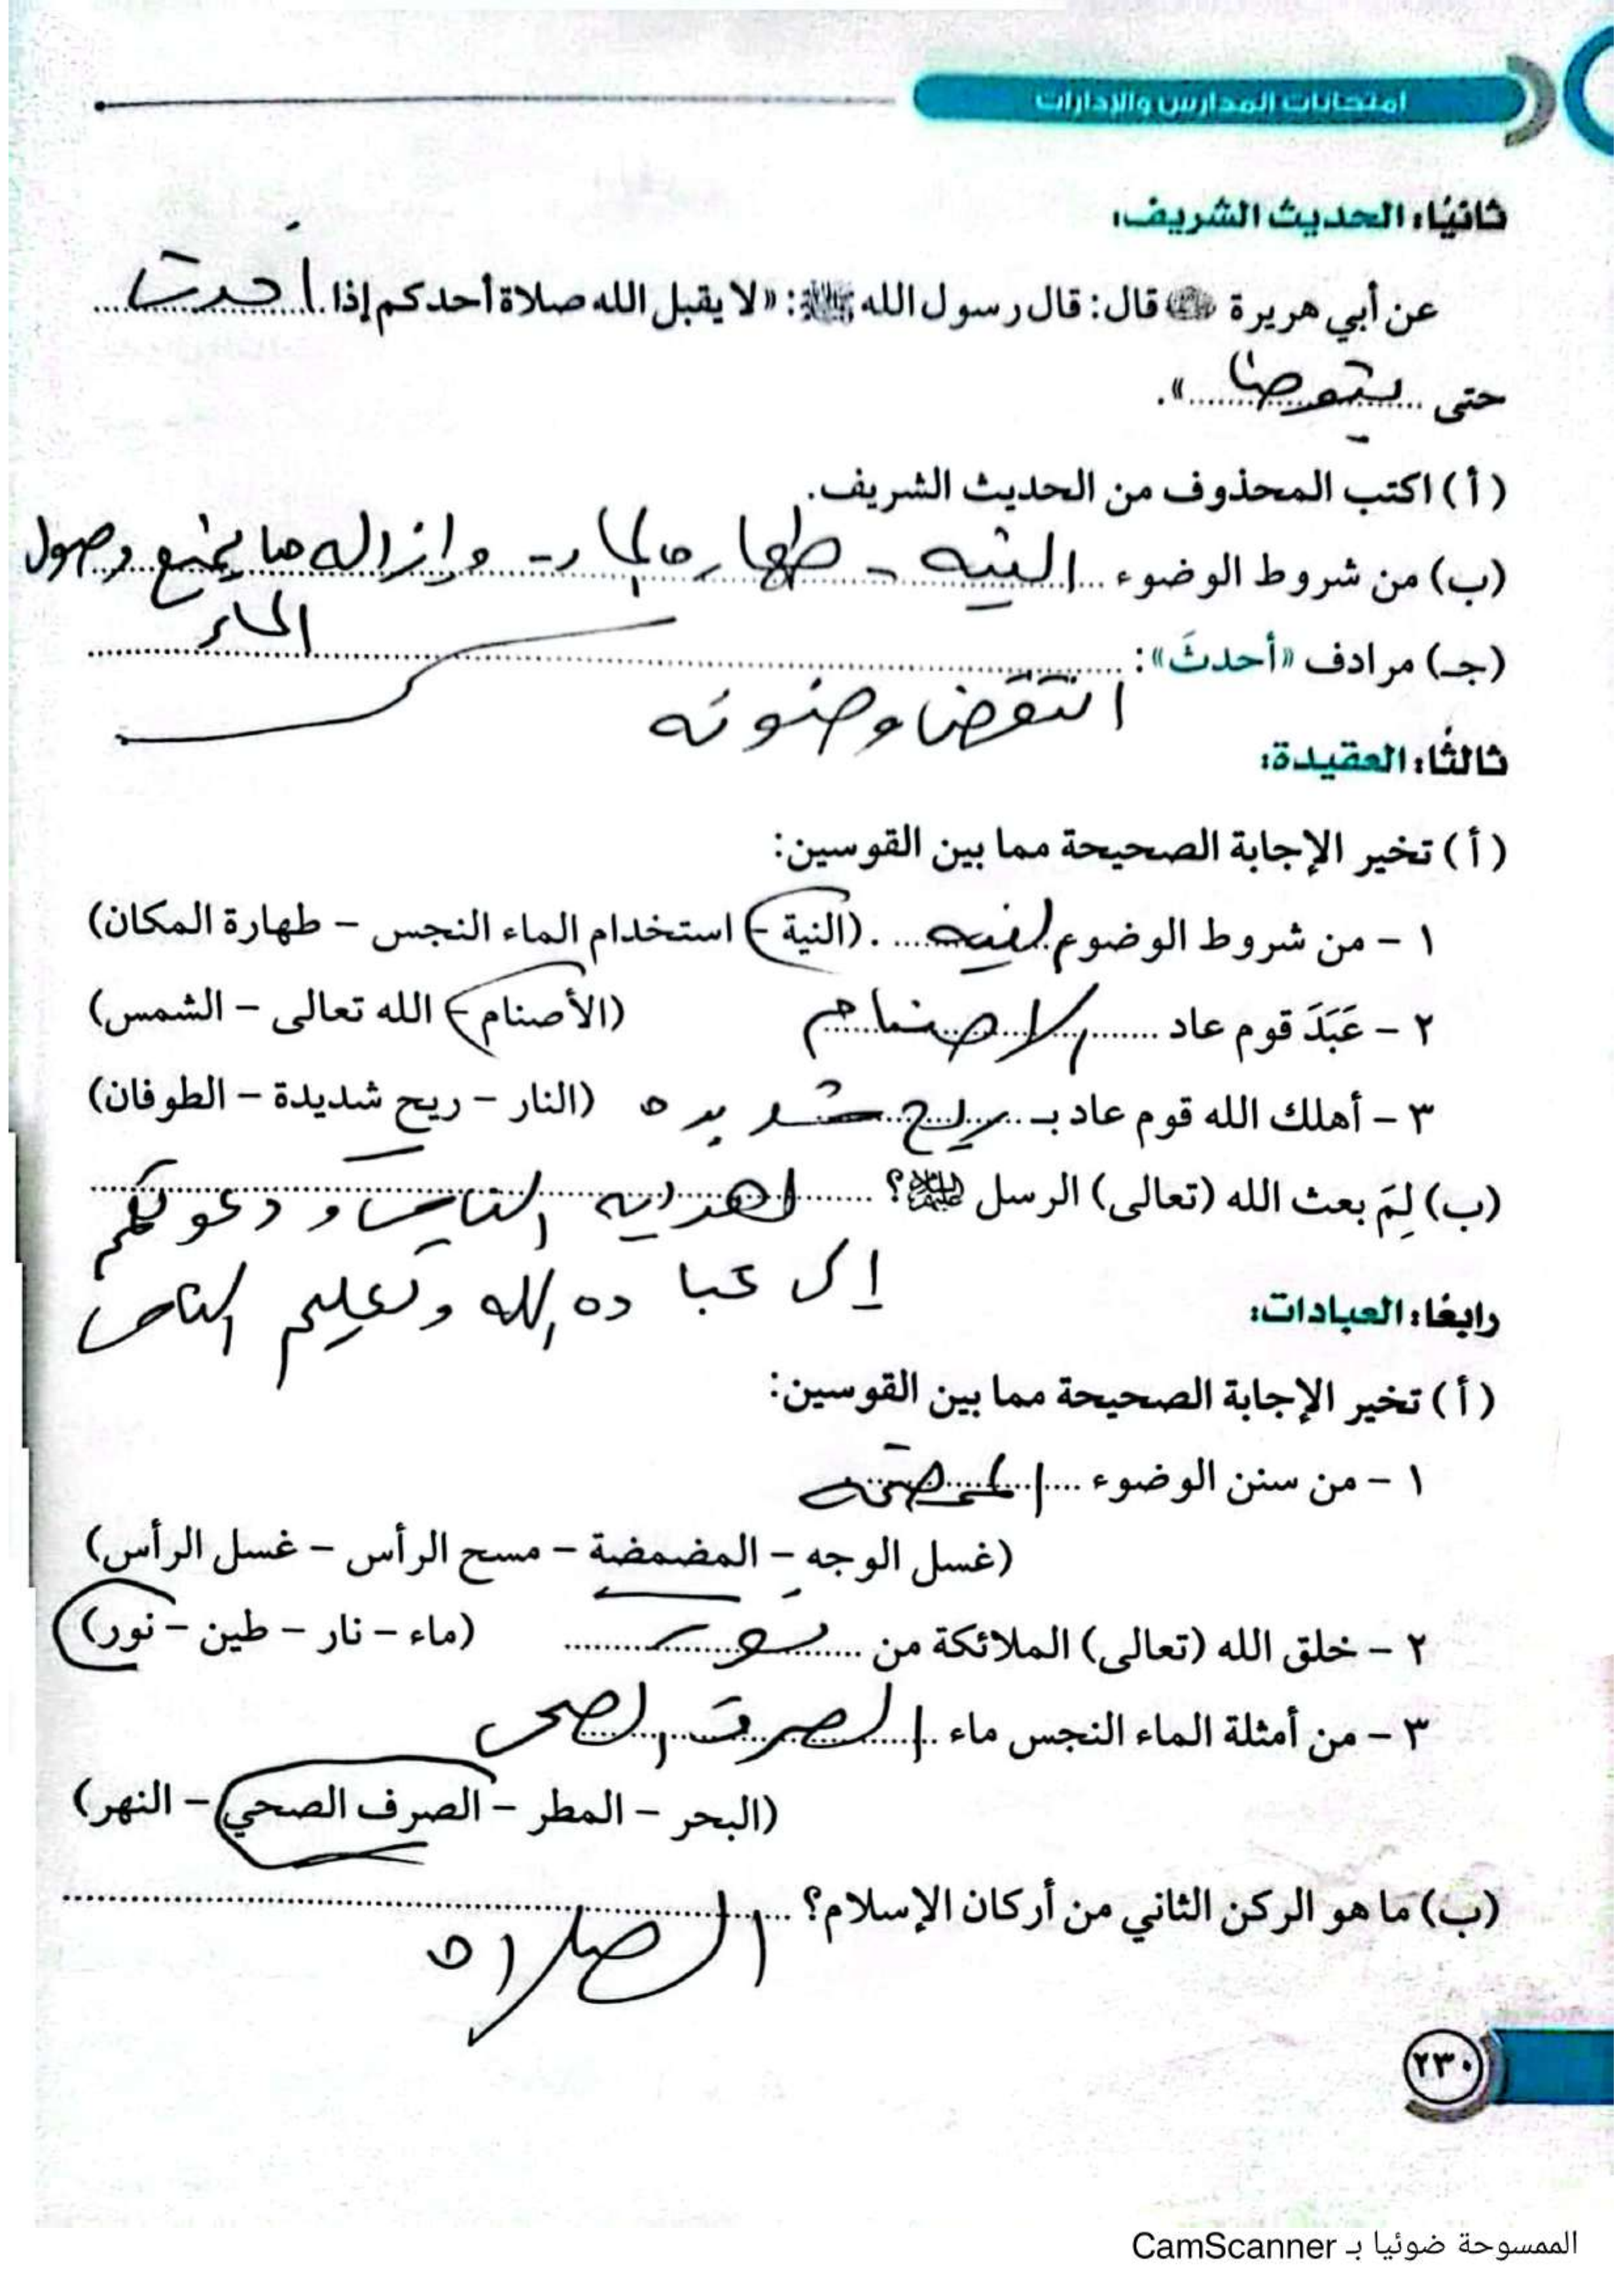 امتحانات المدارس والإدارات
ثانيًا: الحديث الشريف:
عن أبي هريرة ﷺ قال: قال رسول الله ﷺ: «لا يقبل الله صلاة أحدكم إذا أحدث
حتى يتوضأ ».
(أ) اكتب المحذوف من الحديث الشريف.
(ب) من شروط الوضوء النيه - طهاره الماء - وإزاله ما يمنع وصول
الماء
(جـ) مرادف «أحدثَ»:
انتقض وضوئه
ثالثًا: العقيدة:
(أ) تخير الإجابة الصحيحة مما بين القوسين:
١ - من شروط الوضوء النيه. (النية - استخدام الماء النجس - طهارة المكان)
٢ - عَبَدَ قوم عاد الاصنام (الأصنام - الله تعالى - الشمس)
٣ - أهلك الله قوم عاد بـ ريح شديده (النار - ريح شديدة - الطوفان)
(ب) لِمَ بعث الله (تعالى) الرسل ؟ لهدايه الناس و دعوتهم
إلى عباده الله وتعليم الناس
رابعًا: العبادات:
(أ) تخير الإجابة الصحيحة مما بين القوسين:
١ - من سنن الوضوء المضمضه
(غسل الوجه - المضمضة - مسح الرأس - غسل الرأس)
٢ - خلق الله (تعالى) الملائكة من نور (ماء - نار - طين - نور)
٣ - من أمثلة الماء النجس ماء الصرف الصحى
(البحر - المطر - الصرف الصحي - النهر)
(ب) ما هو الركن الثاني من أركان الإسلام؟
الصلاه
٢٣٠
الممسوحة ضوئيا بـ CamScanner